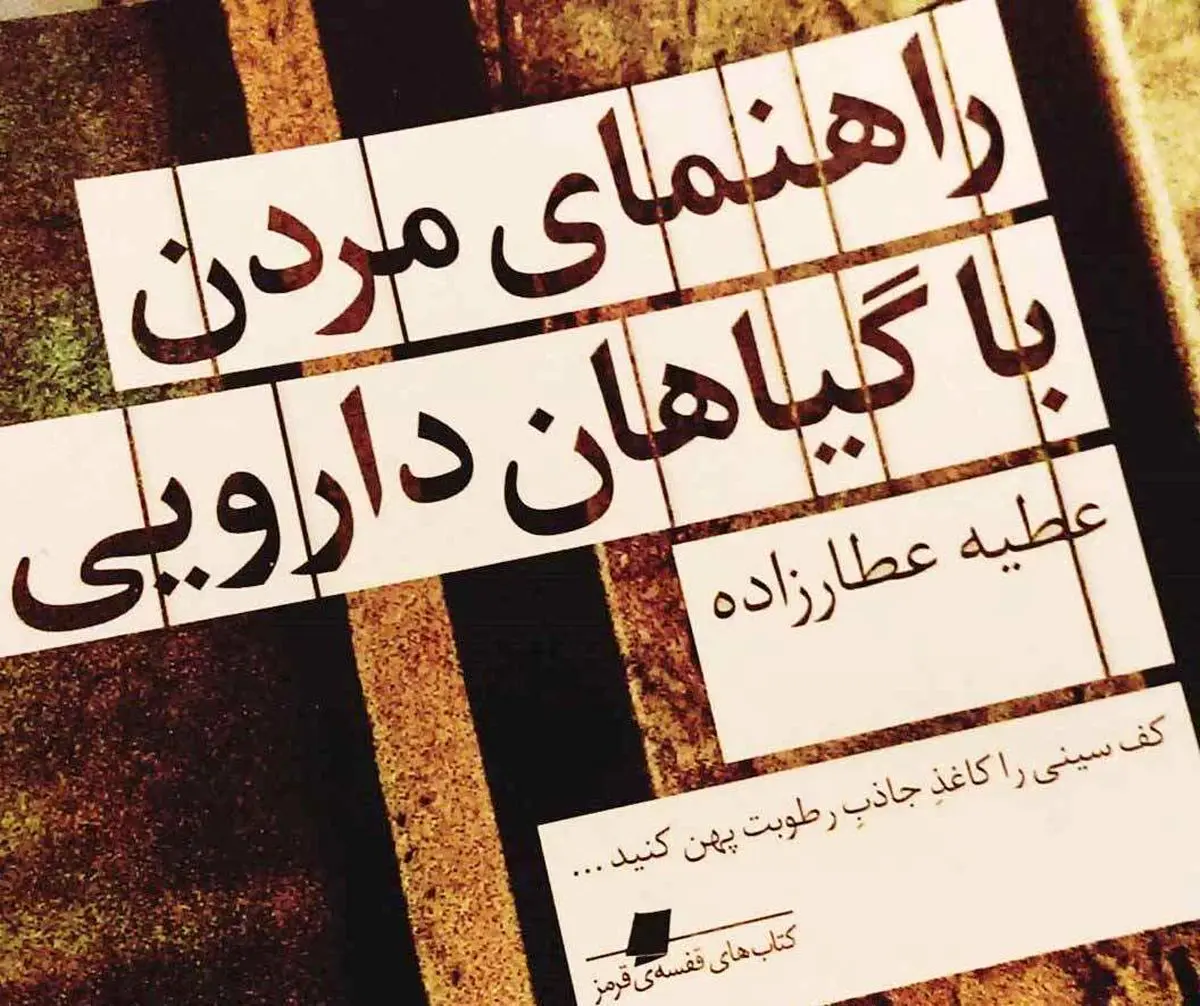 راهنمای مردن
با گیاهان دارویی
عطیه عطارزاده
کف سینی را کاغذِ جاذبِ رطوبت پهن کنید...
کتاب‌های قفسه‌ی قرمز